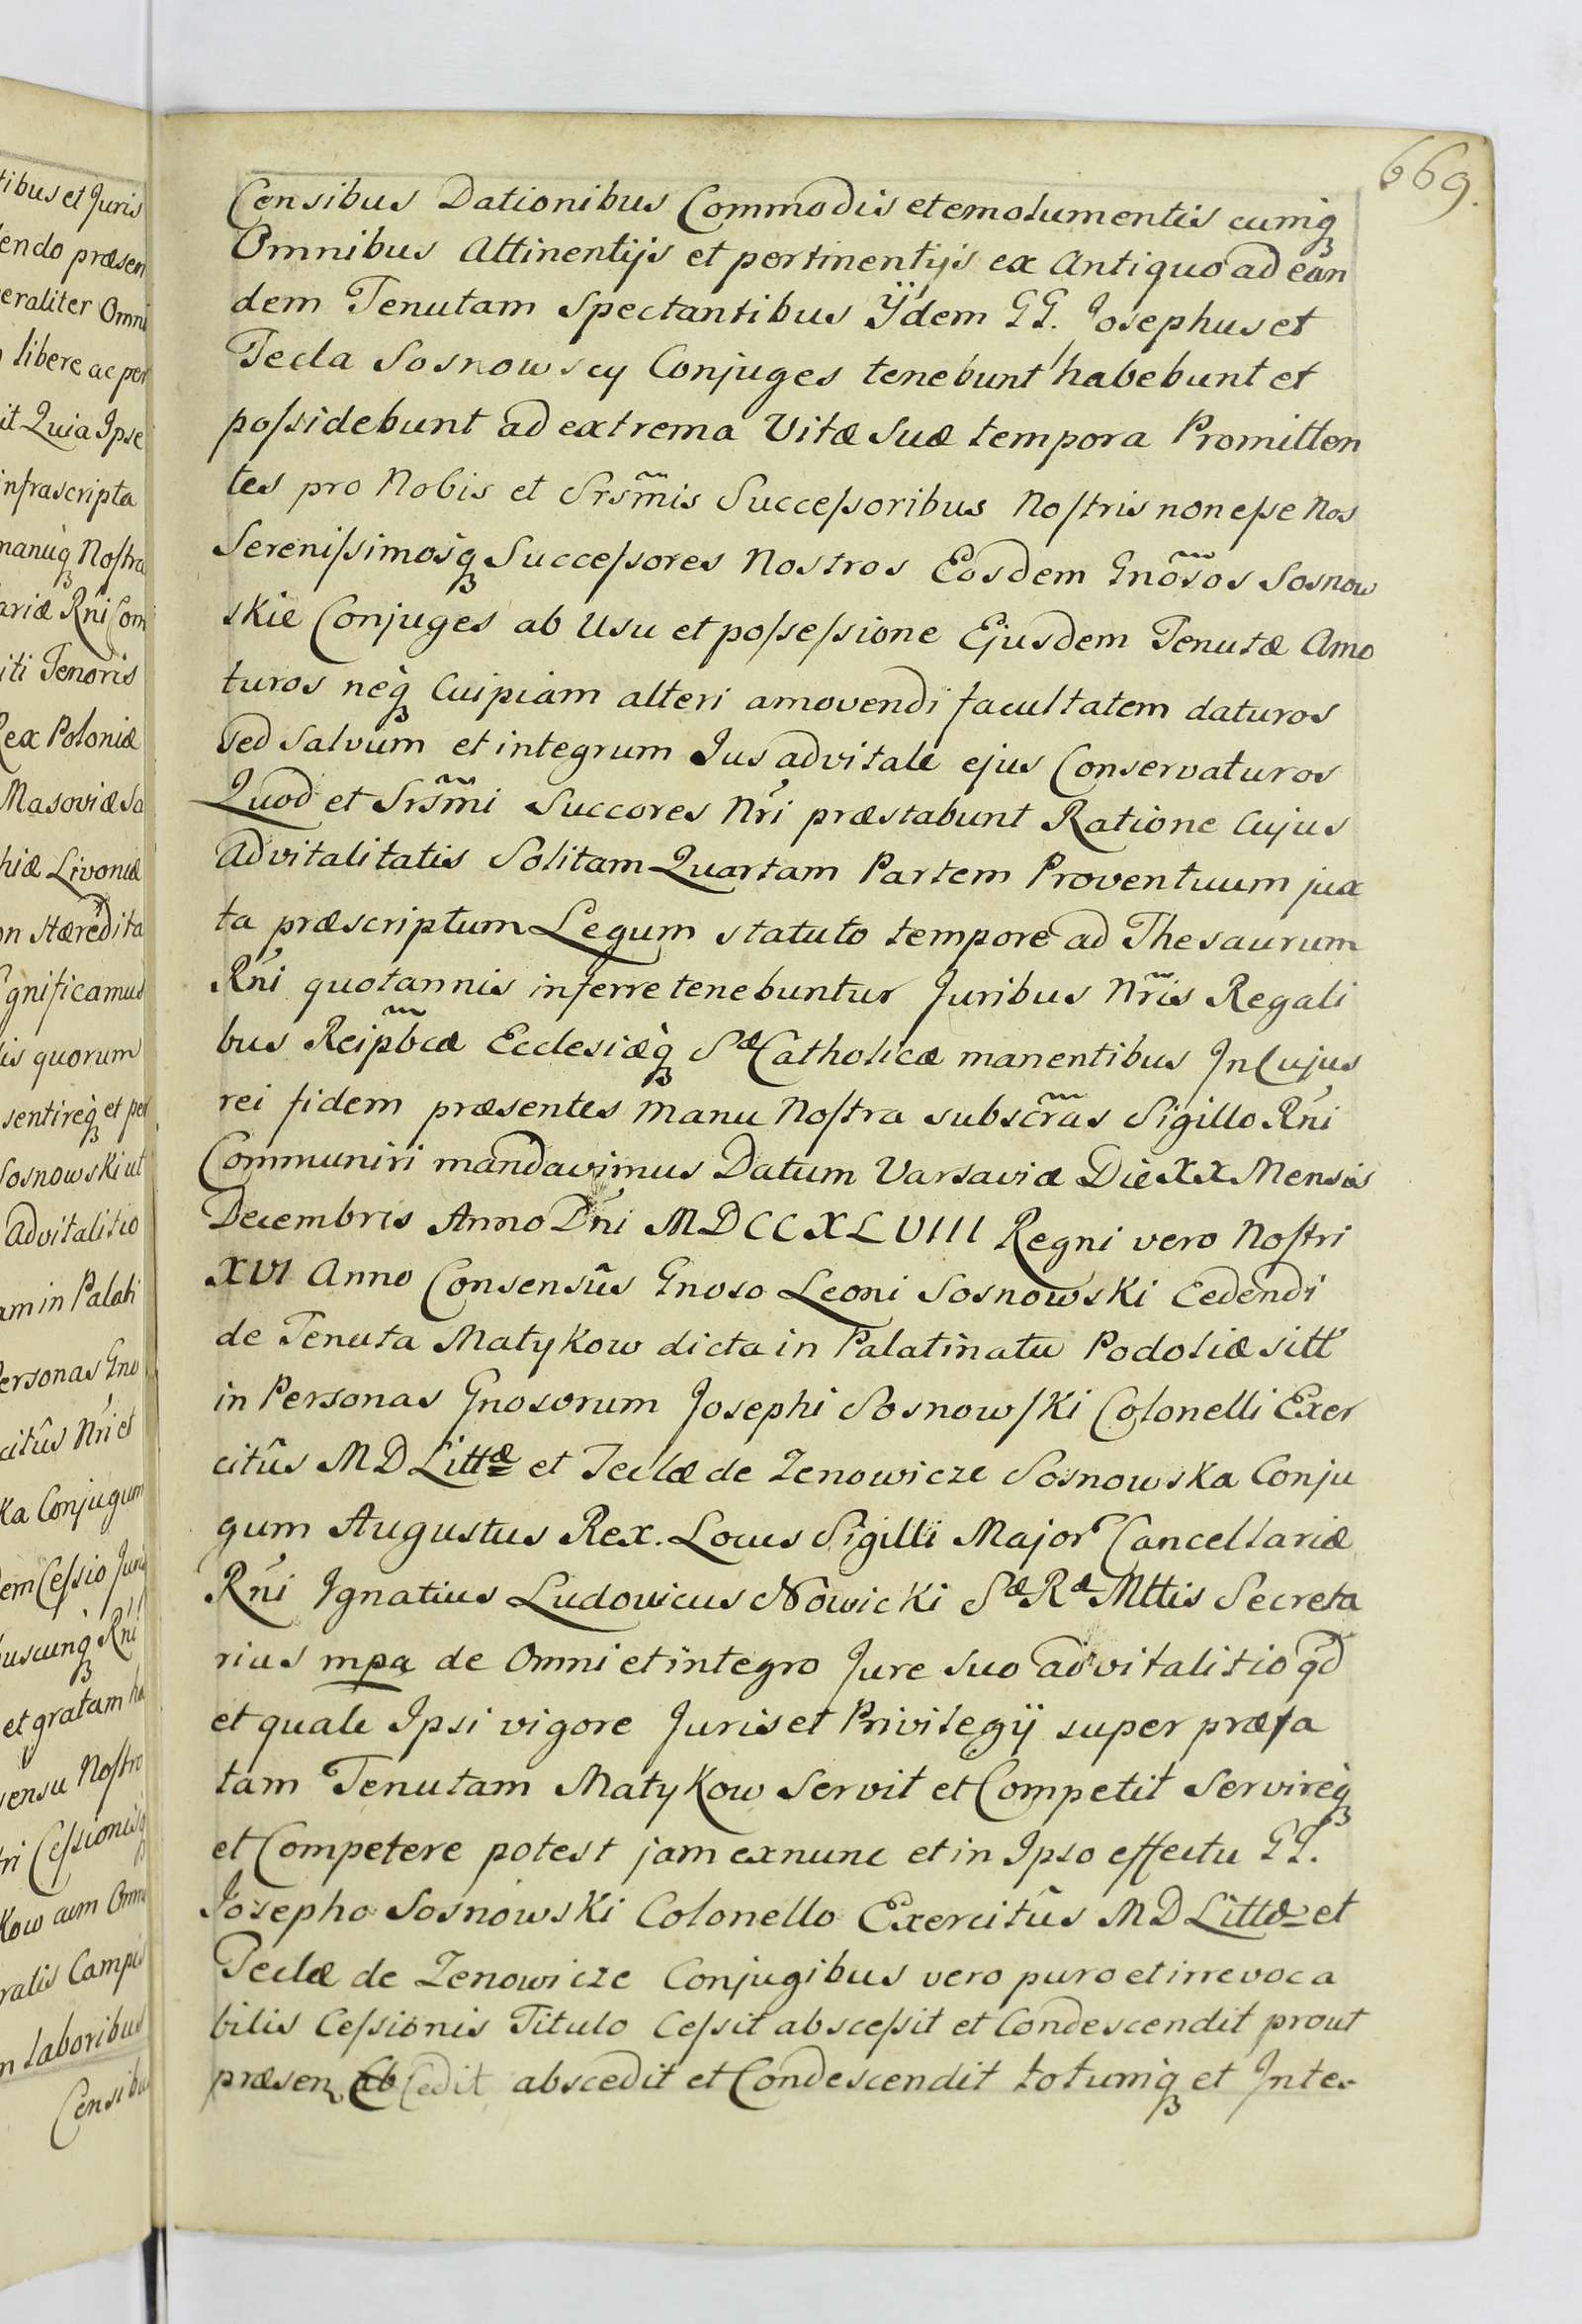 669.
Censibus Dationibus Commodis et emolumentis cumq̀ꝫ
Omnibus Attinentijs et pertinentijs ex Antiquo ad ean
dem Tenutam Spectantibus Ÿdem GG. Josephus et
Tecla Sosnowscy Conjuges tenebunt habebunt et
poſsidebunt ad extrema Vitæ Suæ tempora Promitten
tes pro Nobis et Srsm̃is Succeſsoribus Noſtris non eſse Nos
Sereniſsimosq̀ꝫ Succeſsores Nostros Eosdem Gnõsos Sosnow
skie Conjuges ab Usu et poſseſsione Ejusdem Tenutæ Amo
turos neq̀ꝫ Cuipiam alteri amovendi facultatem daturos
sed Salvum et integrum Jus advitale ejus Conservaturos
Quod et Srsm̃i Succores Nŕi præstabunt Ratione Cujus
Advitalitatis Solitam Quartam Partem Proventuum jux
ta præscriptum Legum statuto tempore ad Thesaurum
Rńi quotannis inferre tenebuntur Juribus Nr̃is Regali
bus Reip̃bcæ Ecclesiæq̀ꝫ Sᵆ Catholicæ manentibus In Cujus
rei fidem præsentes Manu Noſtra subscr̃as Sigillo Rńi
Communiri mandavimus Datum Varsaviæ Die XX Mensis
Decembris Anno Dńi MDCCXLVIII Regni vero Noſtri
XVI Anno Consensûs Gnoso Leoni Sosnowski Cedendi
de Tenuta Matykow dicta in Palatinatu Podoliæ sitt
in Personas Gnosorum Josephi Sosnowſki Colonelli Exer
citûs MD Littæ et Teclæ de Zenowicze Sosnowska Conju
gum Augustus Rex. Locus Sigilli Major Cancellariæ
Rńi Ignatius Ludovicus Nowicki Sᵆ Rᵆ Mttis Secreta
rius mpa de Omni et integro Jure suo advitalitio qd
et quale Ipsi vigore Juris et Privilegÿ super præfa
tam Tenutam Matykow Servit et Competit Servireq̀ꝫ
et Competere potest jam exnunc et in Ipso effectu GG.
Josepho Sosnowski Colonello Exercitûs MD Littæ et
Teclæ de Zenowicze Conjugibus vero puro et irrevoca
bilis Ceſsionis Titulo Ceſsit absceſsit et Condescendit prout
præsen Cedit abscedit et Condescendit totumq̀ꝫ et Inte-